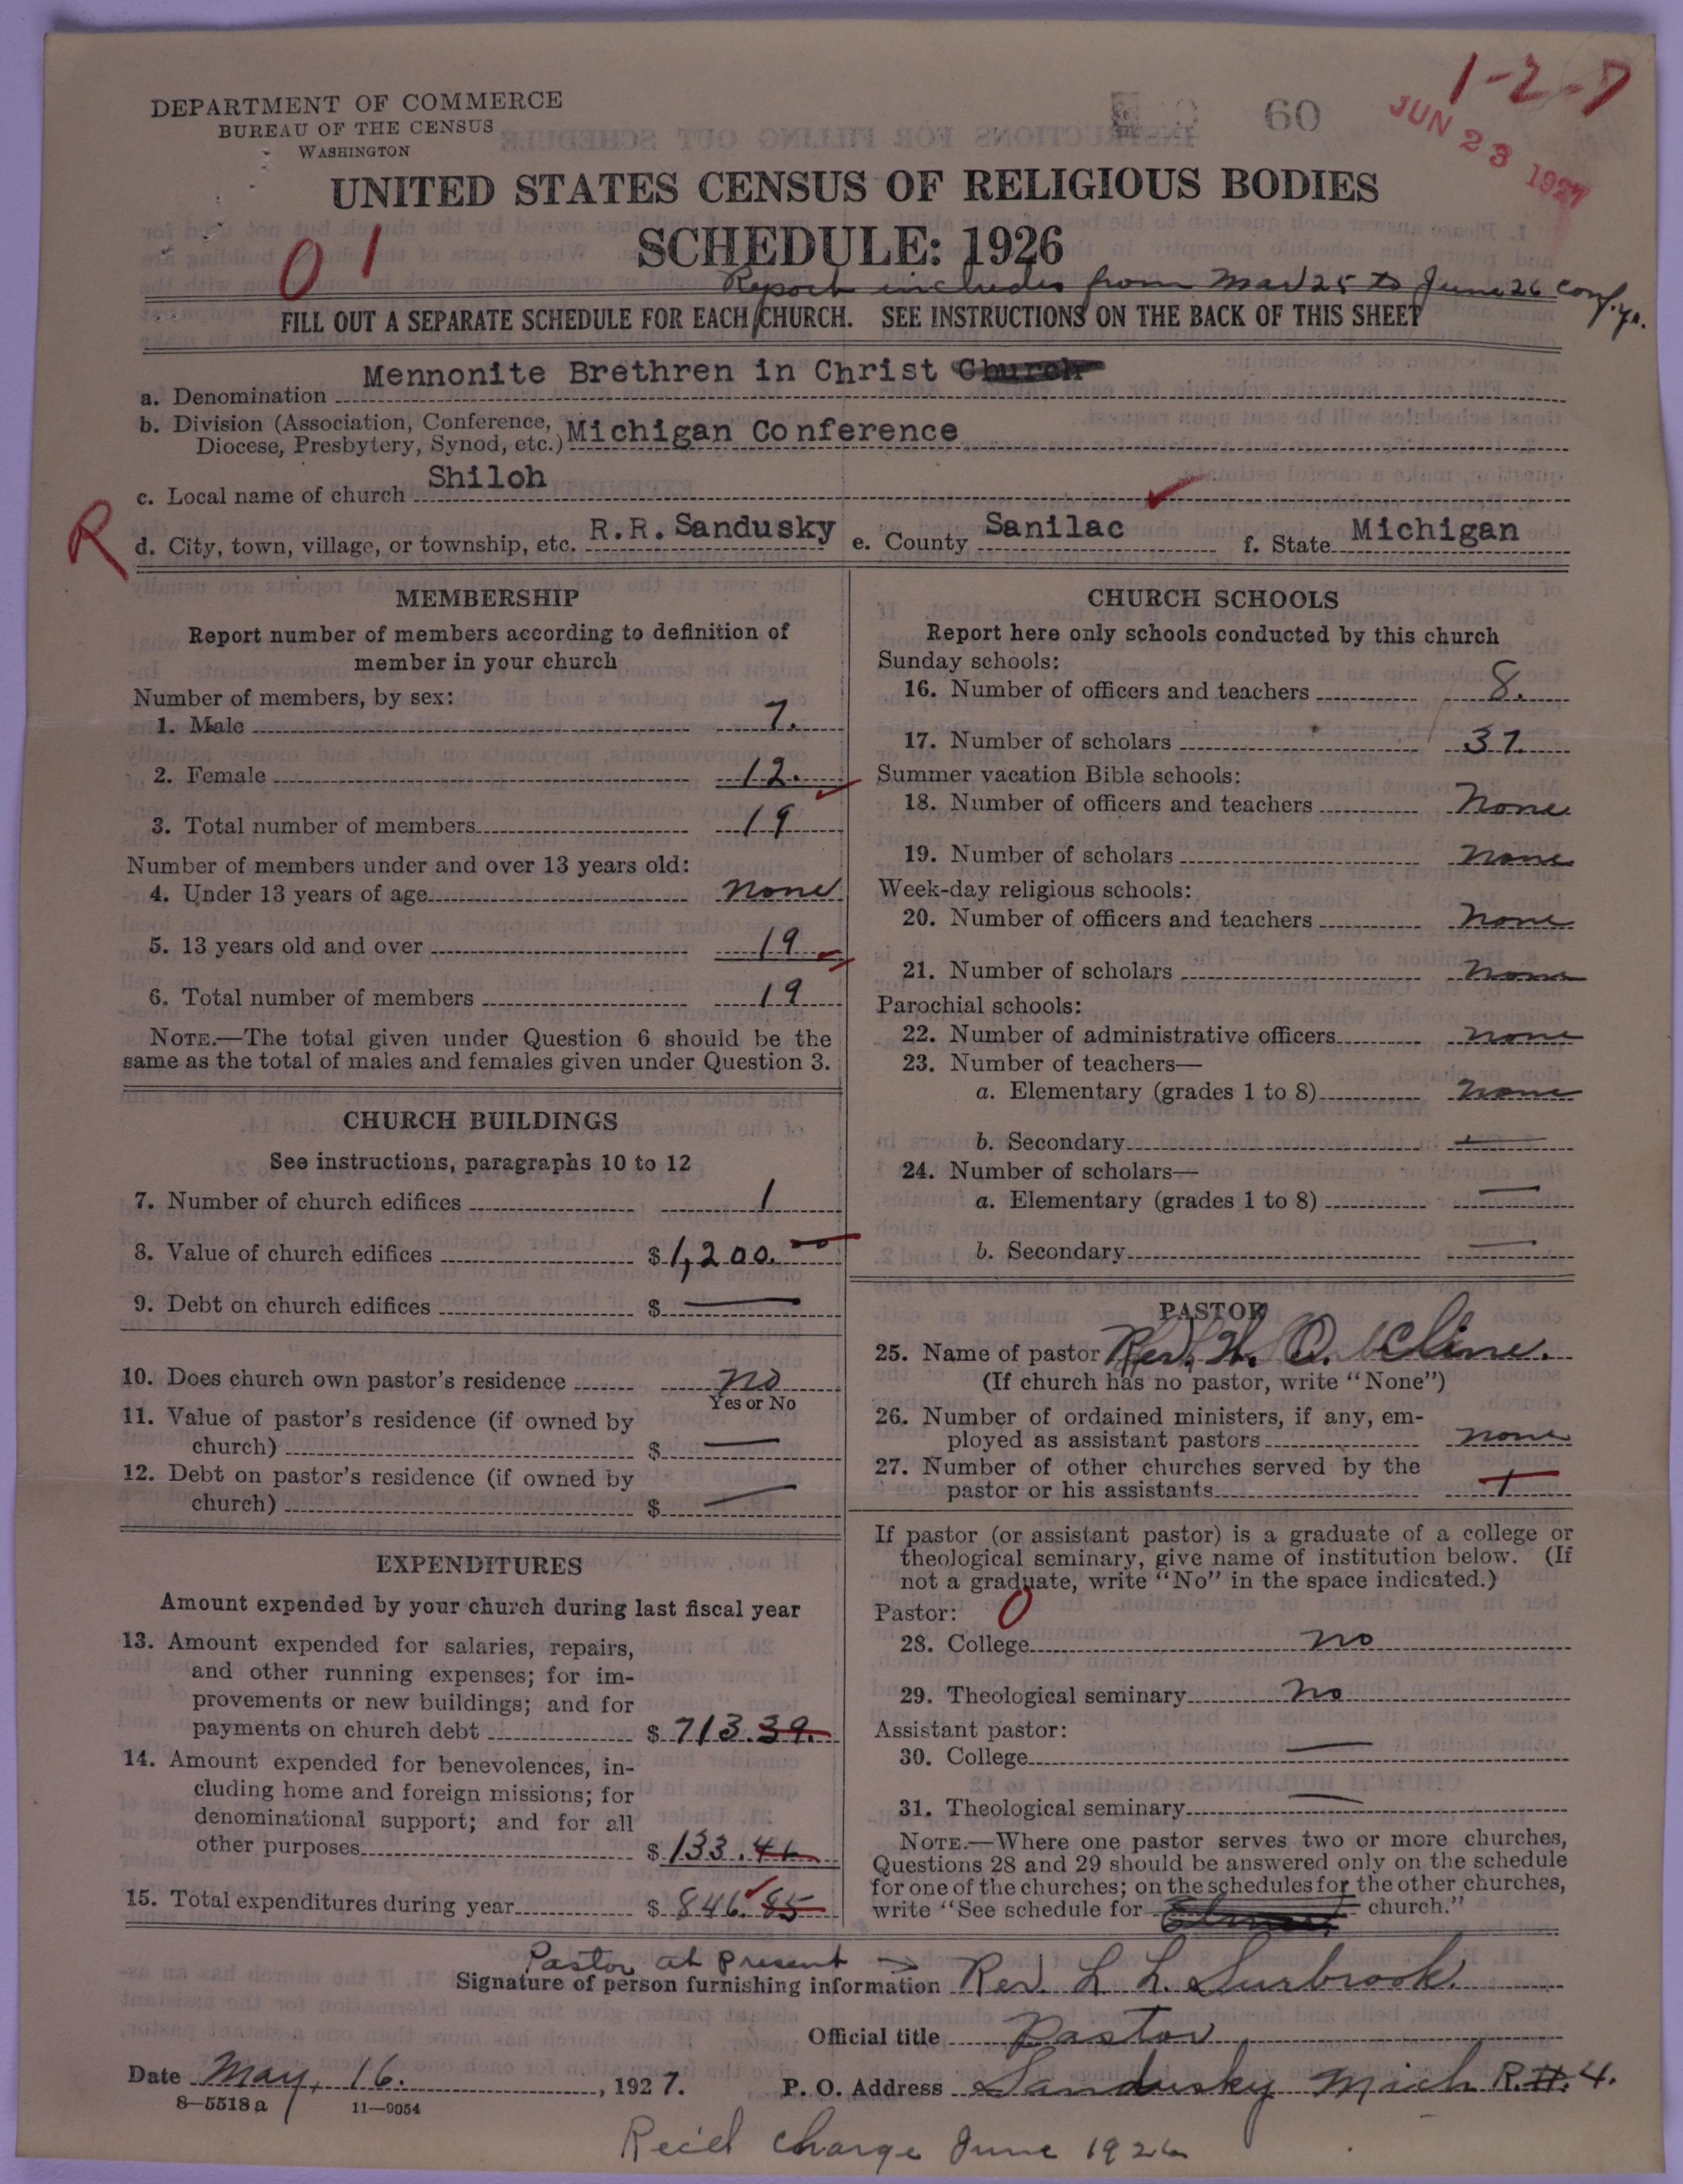 DEPARTMENT OF COMMERCE
BUREAU OF THE CENSUS
WASHINGTON
60
1-2-7
JUN 23 1927
UNITED STATES CENSUS OF RELIGIOUS BODIES
SCHEDULE: 1926
01
Report includes from Mar 25 to June 26 Conf. yr.
FILL OUT A SEPARATE SCHEDULE FOR EACH CHURCH. SEE INSTRUCTIONS ON THE BACK OF THIS SHEET
a. Denomination Mennonite Brethren in Christ Church
b. Division (Association, Conference, Diocese, Presbytery, Synod, etc.) Michigan Conference
c. Local name of church Shiloh
R
d. City, town, village, or township, etc. R.R. Sandusky e. County Sanilac f. State Michigan
MEMBERSHIP
Report number of members according to definition of
member in your church
Number of members, by sex:
1. Male 7.
2. Female 12.
3. Total number of members 19
Number of members under and over 13 years old:
4. Under 13 years of age none
5. 13 years old and over 19
6. Total number of members 19
NOTE.—The total given under Question 6 should be the
same as the total of males and females given under Question 3.
CHURCH BUILDINGS
See instructions, paragraphs 10 to 12
7. Number of church edifices 1
8. Value of church edifices $1,200.
9. Debt on church edifices $ —
10. Does church own pastor's residence no
Yes or No
11. Value of pastor's residence (if owned by
church) $ —
12. Debt on pastor's residence (if owned by
church) $ —
EXPENDITURES
Amount expended by your church during last fiscal year
13. Amount expended for salaries, repairs,
and other running expenses; for im-
provements or new buildings; and for
payments on church debt $ 713.39
14. Amount expended for benevolences, in-
cluding home and foreign missions; for
denominational support; and for all
other purposes $ 133.46
15. Total expenditures during year $ 846.85
CHURCH SCHOOLS
Report here only schools conducted by this church
Sunday schools:
16. Number of officers and teachers 8.
17. Number of scholars 37.
Summer vacation Bible schools:
18. Number of officers and teachers None
19. Number of scholars none
Week-day religious schools:
20. Number of officers and teachers none
21. Number of scholars none
Parochial schools:
22. Number of administrative officers none
23. Number of teachers—
a. Elementary (grades 1 to 8) none
b. Secondary —
24. Number of scholars—
a. Elementary (grades 1 to 8) —
b. Secondary —
PASTOR
25. Name of pastor Rev. H. O. Cline.
(If church has no pastor, write "None")
26. Number of ordained ministers, if any, em-
ployed as assistant pastors none
27. Number of other churches served by the
pastor or his assistants 1
If pastor (or assistant pastor) is a graduate of a college or
theological seminary, give name of institution below. (If
not a graduate, write "No" in the space indicated.)
Pastor: 0
28. College no
29. Theological seminary no
Assistant pastor:
30. College —
31. Theological seminary —
NOTE.—Where one pastor serves two or more churches,
Questions 28 and 29 should be answered only on the schedule
for one of the churches; on the schedules for the other churches,
write "See schedule for church."
Pastor at present →
Signature of person furnishing information Rev. L. L. Surbrook.
Official title Pastor
Date May, 16. , 1927. P. O. Address Sandusky Mich R.#.4.
8—5518a 11—9054
Rec'd charge June 1926